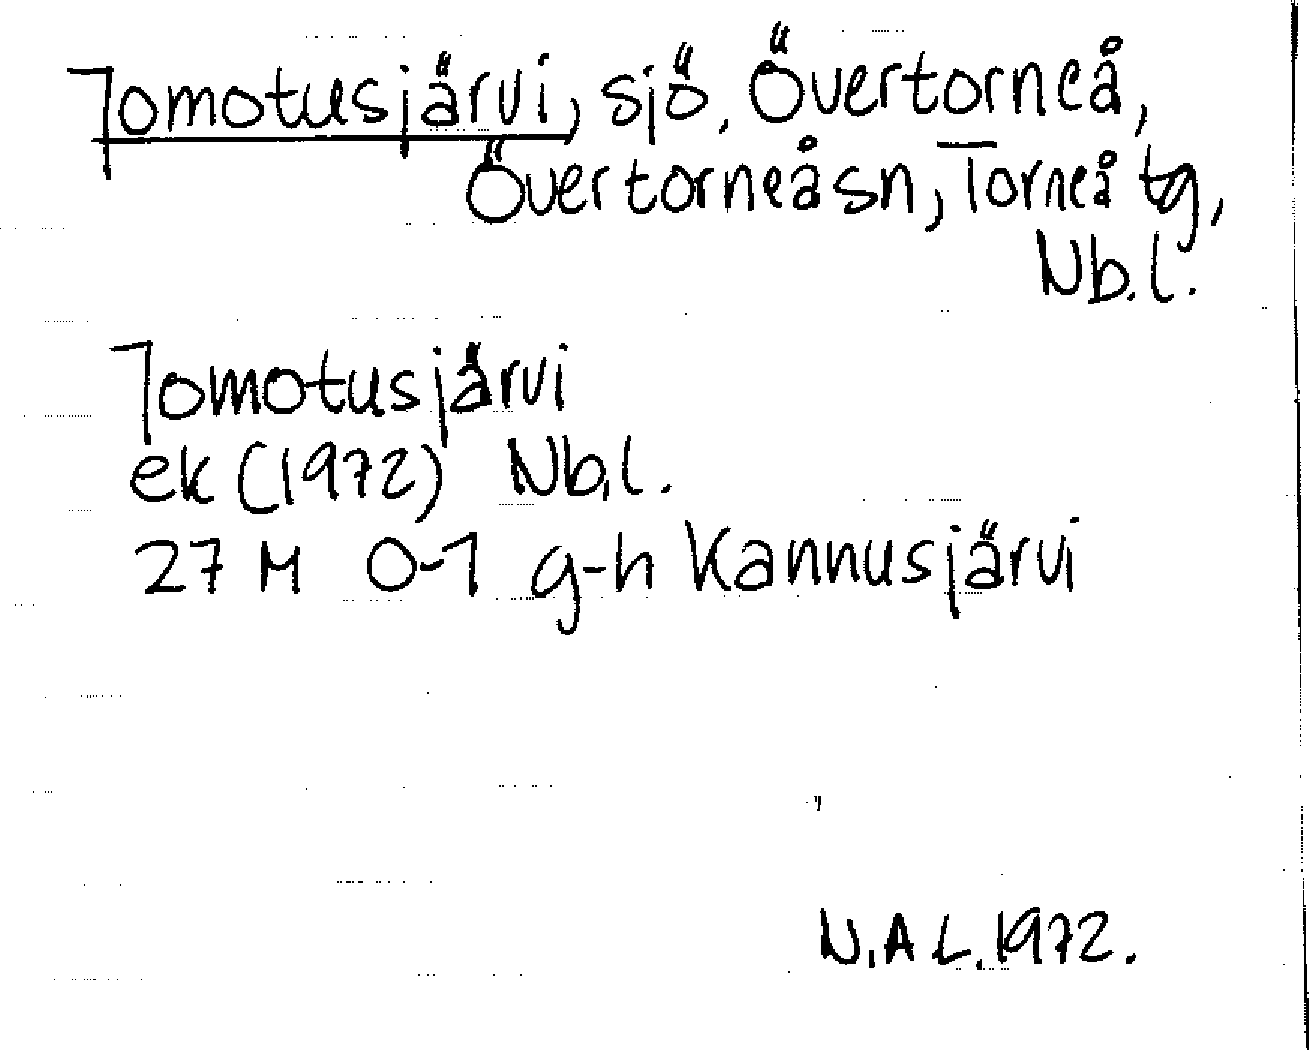 Tomotusjärvi, sjö, Övertorneå,
Övertorneå sn, Torneå tg,
Nb.l.
Tomotusjärvi
ek (1972) Nb.l.
27 M 0-1 g-h Kannusjärvi
N.A L. 1972.